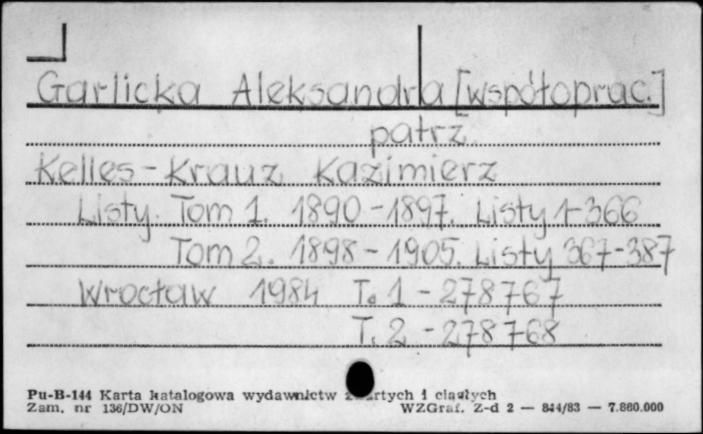 Garlicka Aleksandra [współoprac.]
patrz
Kelles-Krauz Kazimierz
Listy. Tom 1. 1890-1897. Listy 1-366
Tom 2. 1898-1905. Listy 367-387
Wrocław 1984 T. 1 - 278767
T. 2 - 278768
Pu-B-144 Karta katalogowa wydawnictw zwartych i ciągłych
Zam. nr 136/DW/ON WZGraf. Z-d 2 — 844/83 — 7.860.000